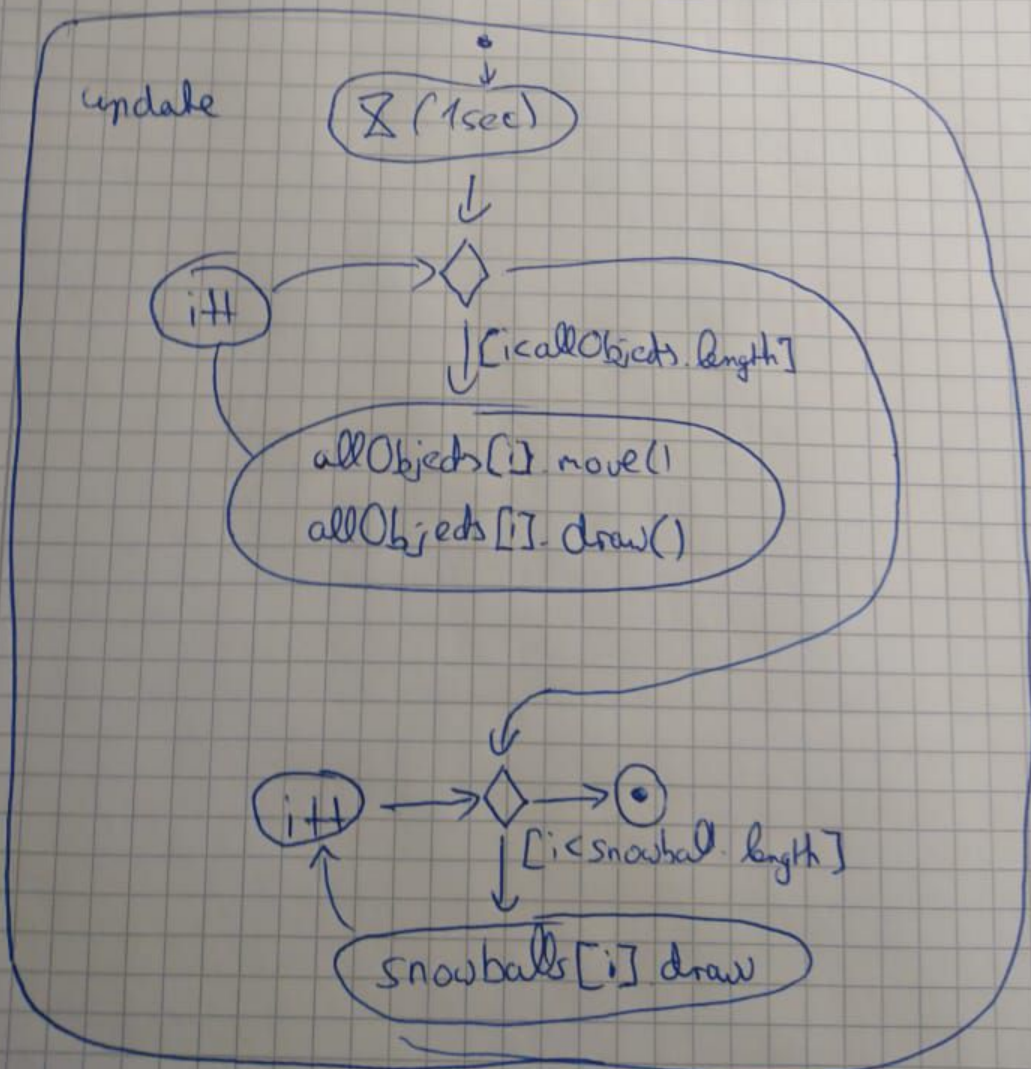 update
(1sec)
i++
[i<allObjects.length]
allObjects[i].move()
allObjects[i].draw()
i++
[i<snowbal.length]
snowballs[i] draw